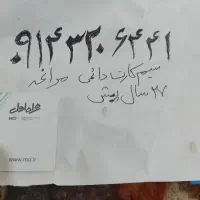 ۰۹۱۴۳۲۰۶۴۴۱
سیم کارت دائمی مراغه
۲۷ سال پیش
همراه اول
MCI
www.mci.ir